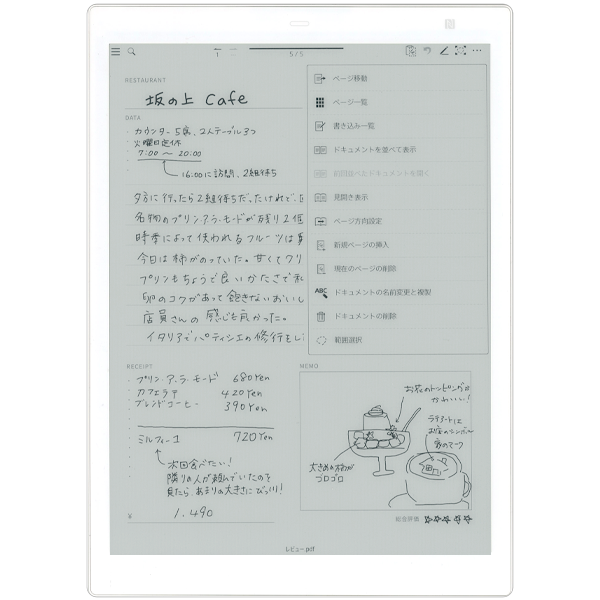 5/5
RESTAURANT
坂の上 Cafe
DATA
・カウンター5席、2人テーブル3つ
火曜日定休
・7:00 〜 20:00
16:00に訪問、2組待ち
夕方に行ったら2組待ちだ。たけれど、
名物のプリン・ア・ラ・モードが残り2個
時季によって使われるフルーツは
今日は柿がのっていた。甘くてクリ
プリンもちょうど良いかたさで
卵のコクがあって飽きないおいし
店員さんの感じも良かった。
イタリアでパティシエの修行をし
ページ移動
ページ一覧
書き込み一覧
ドキュメントを並べて表示
前回並べたドキュメントを開く
見開き表示
ページ方向設定
新規ページの挿入
現在のページの削除
ABC ドキュメントの名前変更と複製
ドキュメントの削除
範囲選択
RECEIPT
・プリン・ア・ラ・モード 680Yen
カフェラテ 420Yen
・ブレンドコーヒー 390Yen
ミルフィーユ 720Yen
次回食べたい!
隣りの人が頼んでいたのを
見たら、あまりの大きさにびっくり!
¥ 1,490
MEMO
お花のトッピングが
かわいい!
ラテアートは
お店のシンボル
家のマーク
大きめの柿が
ゴロゴロ
総合評価
レビュー.pdf